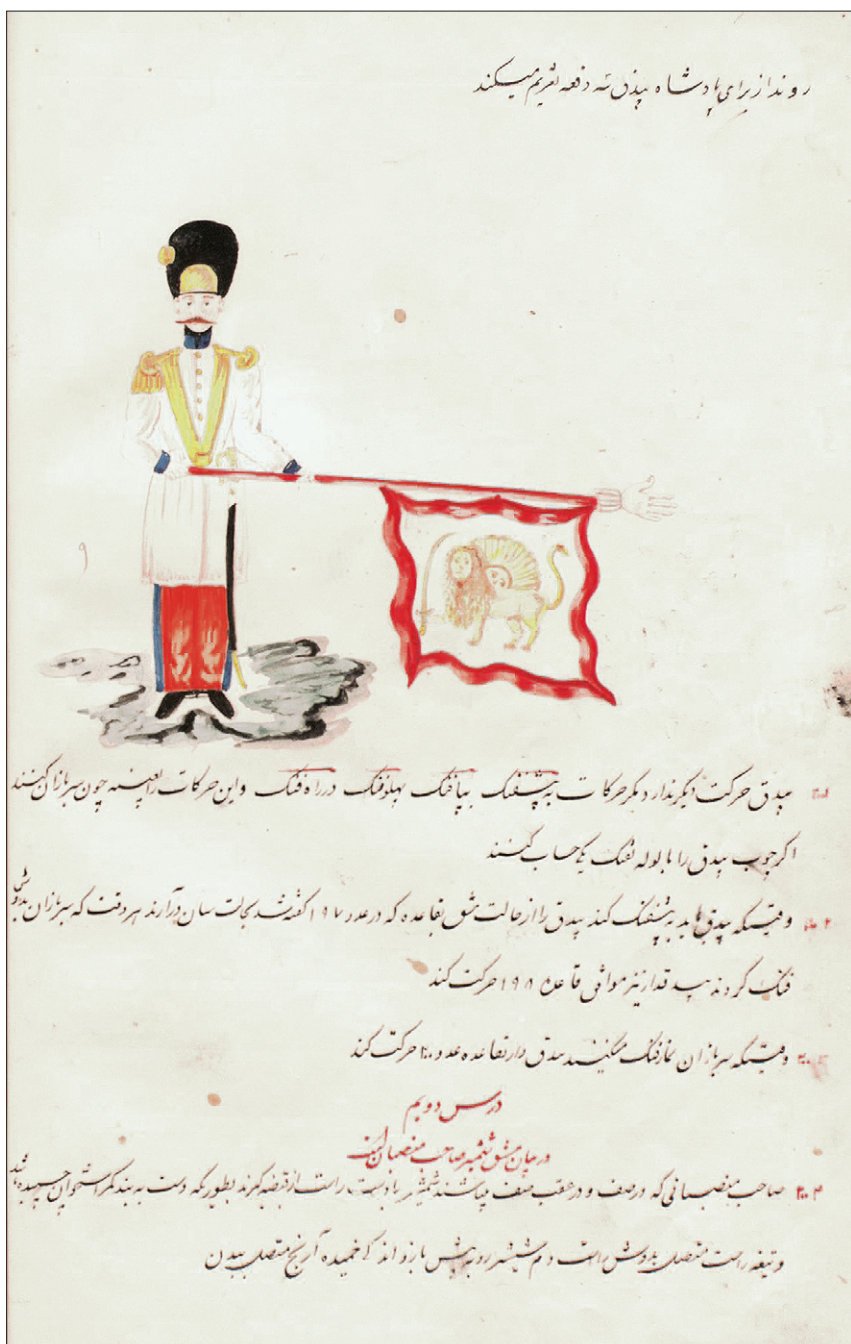 روند از برای پادشاه بیدق سه دفعه تعظیم میکند
۹
۲۰۱ بیدق حرکت دیگر ندارد مگر حرکات به پیشفنگ بپافنگ پهلوفنگ در راه فنگ و این حرکات را بعینه چون سربازان کنند
اگر چوب بیدق را با لوله تفنگ یک حساب کنند
۲۰۲ وقتیکه بیدق باید به پیشفنگ کند بیدق را از حالت مشق بقاعده که در عدد ۱۹۷ گفته شد بحالت سان درآرند هر وقت که سربازان بدوش
فنگ کردند بیدقدار نیز موافق قاعده ۱۹۵ حرکت کند
۲۰۳ وقتیکه سربازان فنگ میکنند بیدق دار بقاعده عدد ۲۰۰ حرکت کند
درس دویم
در بیان مشق شمشیر صاحب منصبان است
۲۰۴ صاحب منصبانی که در صف و در عقب صف میباشند شمشیر بادست راست از قبضه گیرند بطوریکه دست به بند کمر استخوان چسبیده باشد
و تیغه راست متصل بدوش راست و دم شمشیر رو به پیش بازو اندک خمیده آرنج متصل ببدن